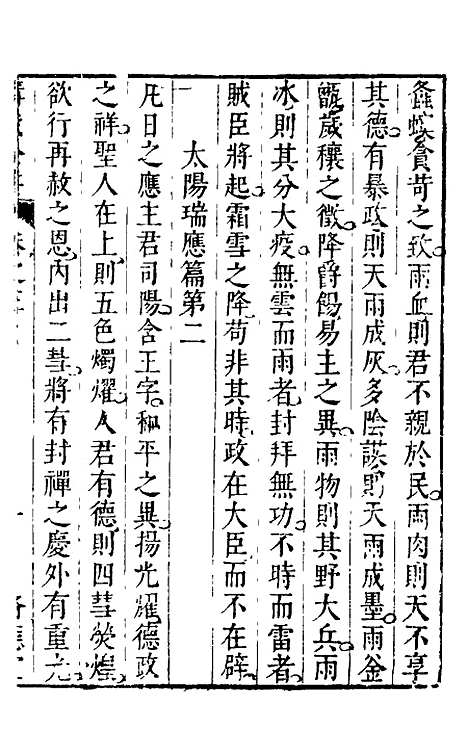 螽蝝貪苛之致雨血則君不親於民雨肉則天不享
其德有暴政則天雨成灰多陰謀則天雨成墨雨釜
甑歲穰之徵降� 餳易主之異雨物則其野大兵雨
冰則其分大疫無雲而雨者封拜無功不時而雷者
賊臣將起霜雪之降苟非其時政在大臣而不在辟
太陽瑞應篇第二
凡日之應主君司陽含王字和平之異揚光耀德政
之祥聖人在上則五色燭耀人君有德則四彗熒煌
欲行再赦之恩內出二彗將有封禪之慶外有重光